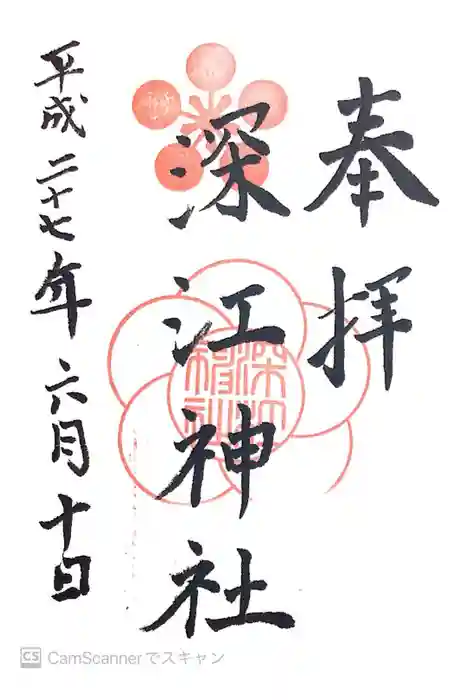 奉拝
深江神社
平成二十七年六月十日
CS CamScannerでスキャン